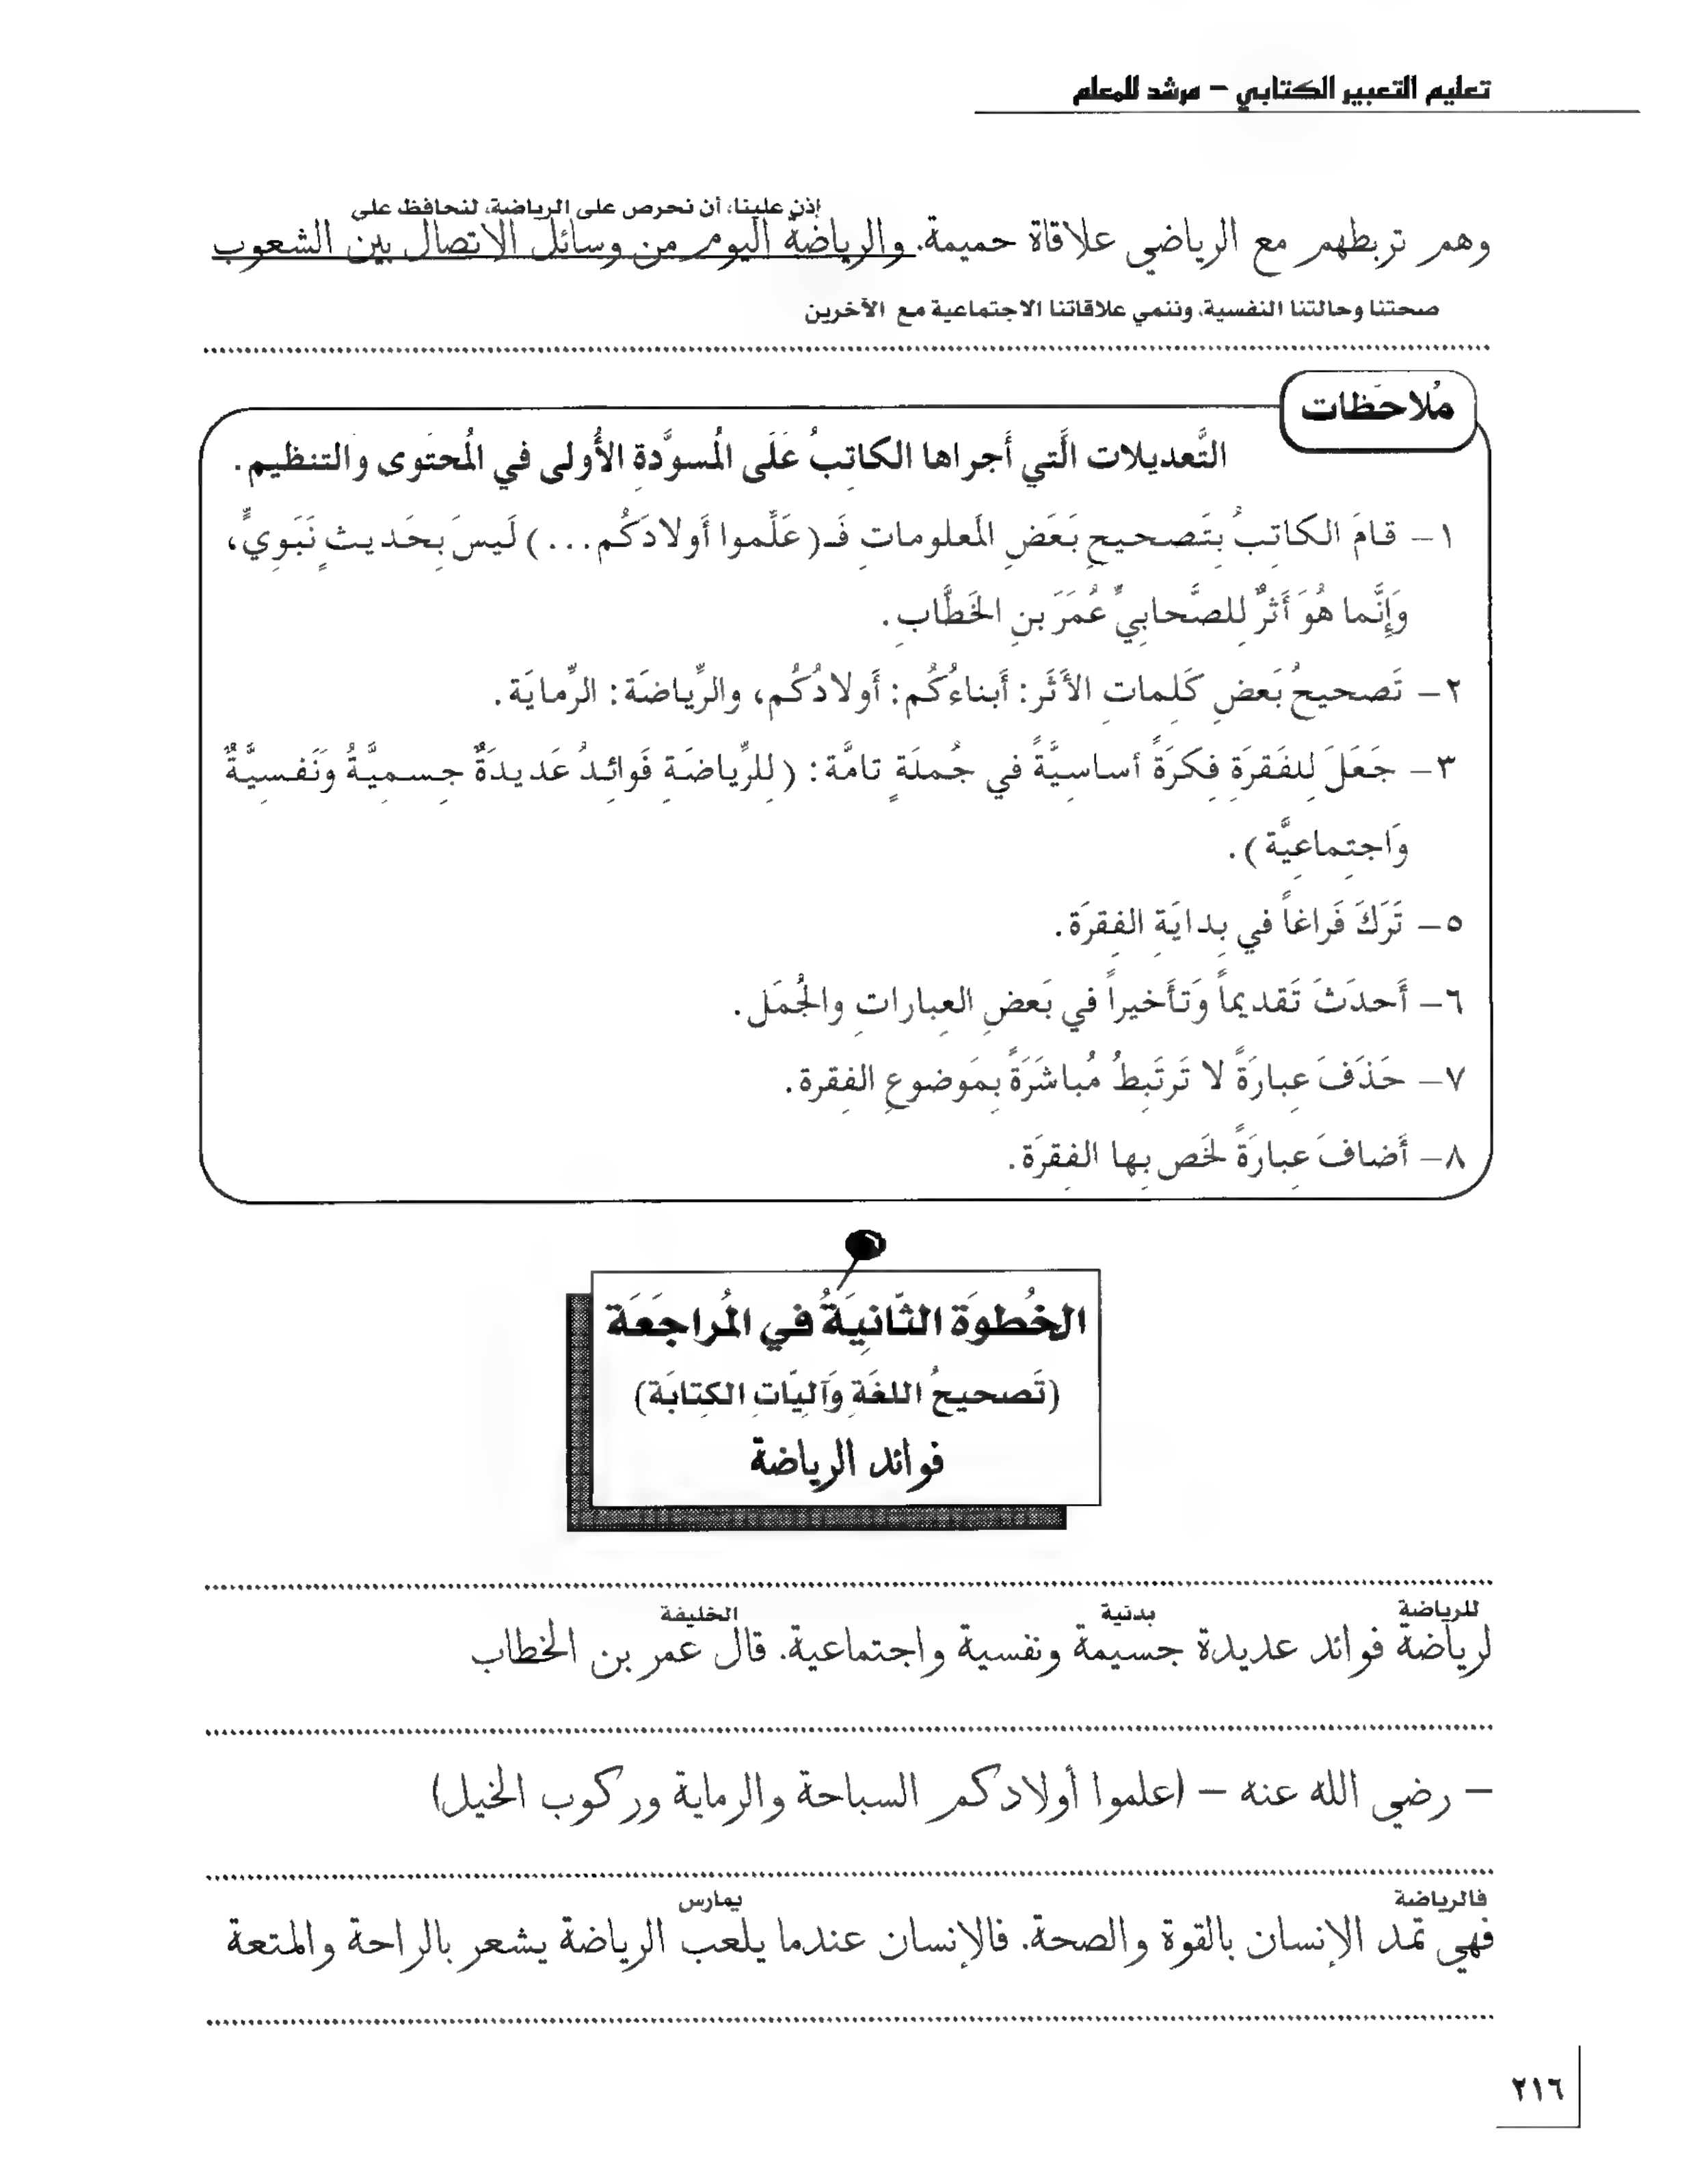 تعليم التعبير الكتابي – مرشد للمعلم
إذن علينا، أن نحرص على الرياضة، لنحافظ على
وهم تربطهم مع الرياضي علاقاة حميمة. والرياضة اليوم من وسائل الاتصال بين الشعوب
صحتنا وحالتنا النفسية، وننمي علاقاتنا الاجتماعية مع الآخرين
مُلاحَظات
التَّعديلات الَّتي أَجراها الكاتِبُ عَلَى المُسوَّدةِ الأُولى في المُحتَوى والتنظيم.
١– قامَ الكاتِبُ بِتَصحيحِ بَعَضِ المَعلوماتِ فَـ(عَلِّموا أَولادَكُم...) لَيسَ بِحَديثٍ نَبَوِيٍّ،
وَإِنَّما هُوَ أَثرٌ لِلصَّحابِيِّ عُمَرَ بنِ الخَطَّابِ.
٢– تَصحيحُ بَعضِ كَلِماتِ الأَثَر: أَبناءُكُم: أَولادُكُم، والرِّياضَة: الرِّمايَة.
٣– جَعَلَ لِلفَقرَةِ فِكرَةً أساسِيَّةً في جُملَةٍ تامَّة: (لِلرِّياضَةِ فَوائِدُ عَديدَةٌ جِسمِيَّةُ وَنَفسِيَّةٌ
وَاجتِماعِيَّة).
٥– تَرَكَ فَراغاً في بِدايَةِ الفِقرَة.
٦– أَحدَثَ تَقديماً وَتأَخيراً في بَعضِ العِباراتِ والجُمَل.
٧– حَذَفَ عِبارَةً لا تَرتَبِطُ مُباشَرَةً بِمَوضوعِ الفِقرة.
٨– أَضافَ عِبارَةً لَخَص بِها الفِقرَة.
الخُطوَة الثّانِيَةُ في المُراجَعَة
(تَصحيحُ اللغَةِ وَآلِيّاتِ الكِتابَة)
فوائد الرياضة
للرياضة بدنية الخليفة
لرياضة فوائد عديدة جسيمة ونفسية واجتماعية. قال عمر بن الخطاب
– رضي الله عنه – (علموا أولادكم السباحة والرماية وركوب الخيل)
فالرياضة يمارس
فهي تمد الإنسان بالقوة والصحة. فالإنسان عندما يلعب الرياضة يشعر بالراحة والمتعة
٢١٦